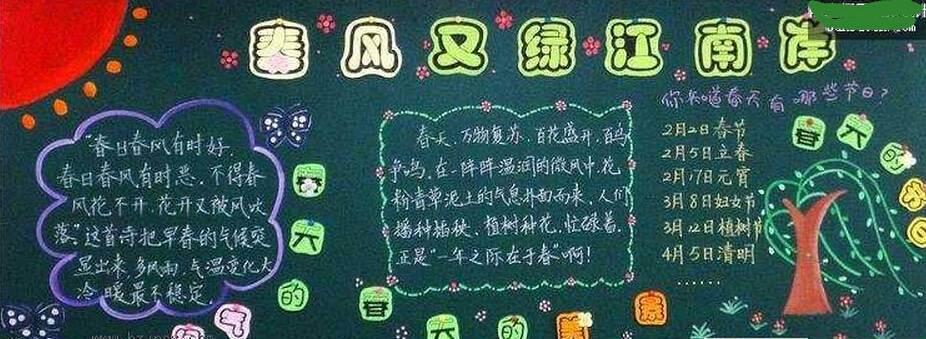 春风又绿江南岸
"春日春风有时好.
春日春风有时恶.不得春
风花不开.花开又被风吹
落."这首诗把早春的气候突
显出来.多风雨,气温变化大
冷暖最不稳定.
春天的
气
春天.万物复苏.百花盛开.百鸟
争鸣,在一阵阵温润的微风中.花
粉青草泥土的气息扑面而来,人们
播种插秧.植树种花,忙碌着.
正是"一年之际在于春"啊!
春天的美景
你知道春天有哪些节日?
2月2日春节
2月5日立春
2月17日元宵
3月8日妇女节
3月12日植树节
4月5日清明
......
春天的节日